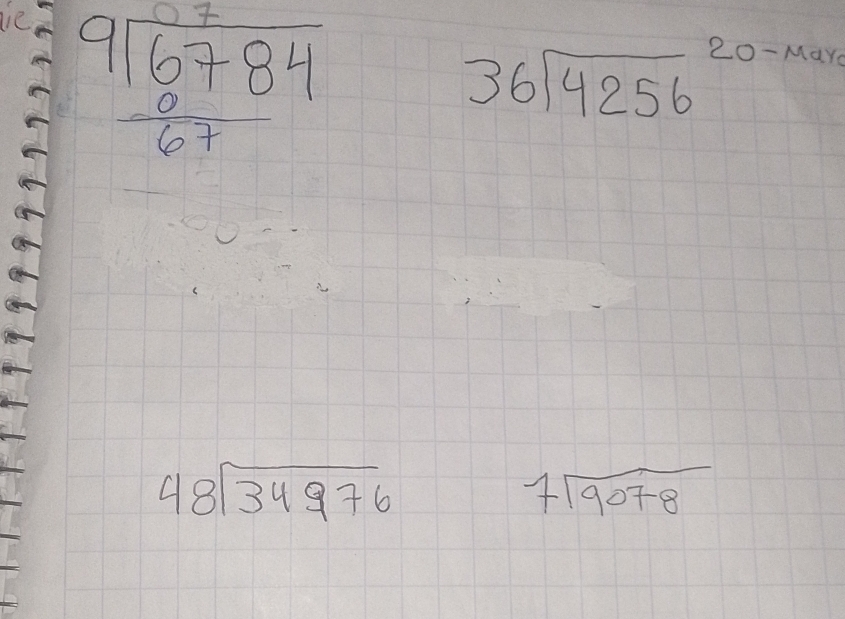 07
9√6784
0
67
36√4256
20-Mayo
48√34976
7√9078